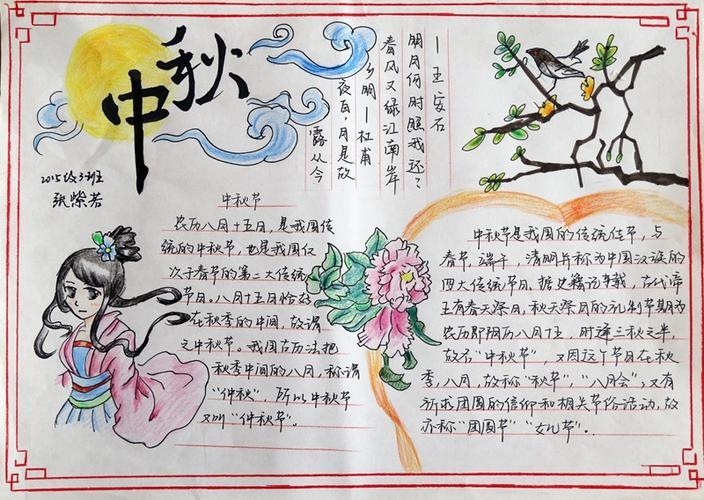 中秋
2015级3班
张紫若
露从今
夜白,月是故
乡明—杜甫
春风又绿江南岸
明月何时照我还?
—王安石
中秋节
农历八月十五日,是我国传
统的中秋节,也是我国仅
次于春节的第二大传统
节日。八月十五恰好
在秋季的中间,故谓
之中秋节。我国古历法把
秋季中间的八月,称谓
“仲秋”,所以中秋节
又叫“仲秋节”。
中秋节是我国的传统佳节,与
春节、端午、清明并称为中国汉族的
四大传统节日。据史籍记载,古代帝
王有春天祭日,秋天祭月的礼制节期为
农历即阴历八月十五,时逢三秋之半,
故名“中秋节”,又因这个节日在秋
季,八月,故称“秋节”,“八月会”,又有
祈求团圆的信仰和相关节俗活动,故
亦称“团圆节”“女儿节”..